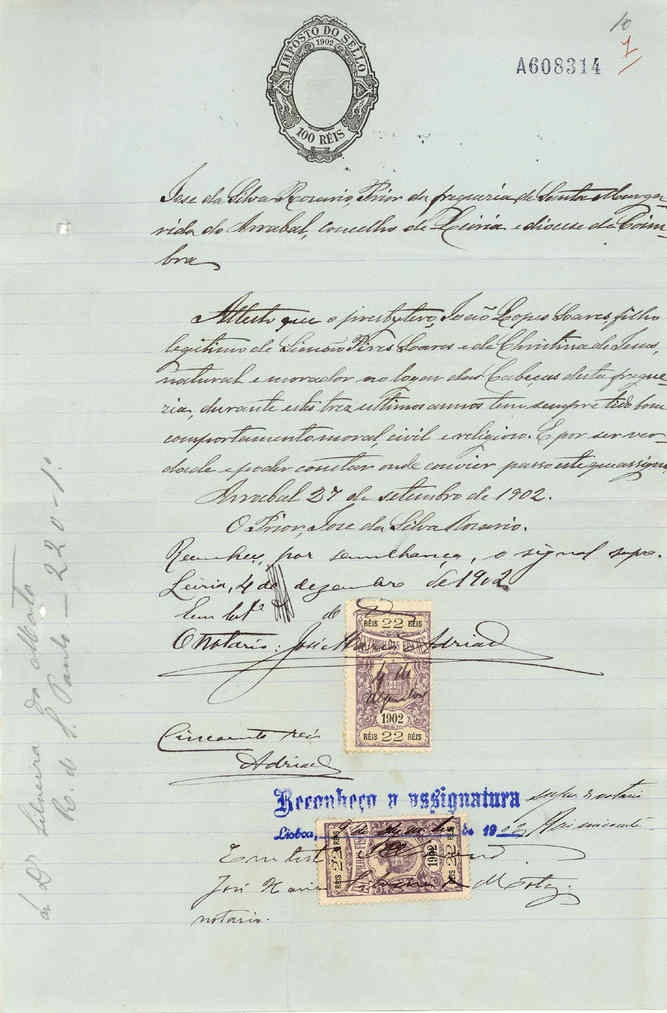 IMPOSTO DO SELLO
1902
100 RÉIS
10
1
A608314
José da Silva Rosario, Prior da freguezia de Santa Marga-
rida do Arrabal, concelho de Leiria e diocese de Coim-
bra,
Attesto que o presbytero, João Lopes Soares, filho
legitimo de Simão Pires Soares e de Christina de Jesus,
natural e morador no logar das Cabeças desta fregue-
zia, durante estes trez ultimos annos tem sempre tido bom
comportamento moral, civil e religioso. E por ser ver-
dade e poder constar onde convier passo este que assigno
Arrabal 27 de setembro de 1902.
O Prior, José da Silva Rosario.
Reconheço, por semelhança, o signal supra.
Leiria, 4 de dezembro de 1902
Em test.º de
O notario: José Adriano
RÉIS 22 RÉIS
4 de
dezembro
1902
RÉIS 22 RÉIS
Cincoenta reis
Adriano
Reconheço a assignatura supra notario
Lisboa, 9 de de 1902
RÉIS 22 RÉIS
1902
RÉIS 22 RÉIS
Em test
José
notario.
Dr. Silveira da Motta
R. de S. Paulo — 220 - 1.º